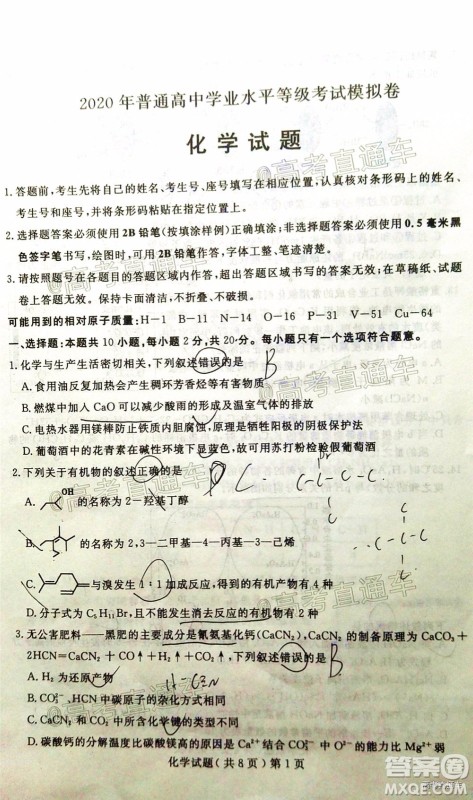 2020年普通高中学业水平等级考试模拟卷
化学试题
1.答题前,考生先将自己的姓名、考生号、座号填写在相应位置,认真核对条形码上的姓名、
考生号和座号,并将条形码粘贴在指定位置上。
2.选择题答案必须使用2B铅笔(按填涂样例)正确填涂;非选择题答案必须使用0.5毫米黑
色签字笔书写,绘图时,可用2B铅笔作答,字体工整、笔迹清楚。
3.请按照题号在各题目的答题区域内作答,超出答题区域书写的答案无效;在草稿纸、试题
卷上答题无效。保持卡面清洁,不折叠、不破损。
可能用到的相对原子质量:H-1 B-11 N-14 O-16 P-31 V-51 Cu-64
一、选择题:本题共10小题,每小题2分,共20分。每小题只有一个选项符合题意。
1.化学与生产生活密切相关,下列叙述错误的是 B
A.食用油反复加热会产生稠环芳香烃等有害物质
B.燃煤中加入CaO可以减少酸雨的形成及温室气体的排放
C.电热水器用镁棒防止铁质内胆腐蚀,原理是牺牲阳极的阴极保护法
D.葡萄酒中的花青素在碱性环境下显蓝色,故可用苏打粉检验假葡萄酒
2.下列关于有机物的叙述正确的是
A. OH 的名称为2-羟基丁醇
B. 的名称为2,3-二甲基-4-丙基-3-己烯
C. 与溴发生1:1加成反应,可得到的有机产物有4种
D.分子式为C₅H₁₁Br,且不能发生消去反应的有机物有2种
3.无公害肥料——黑肥的主要成分是氰氨基化钙(CaCN₂),CaCN₂的制备原理为CaCO₃+
2HCN=CaCN₂+CO↑+H₂↑+CO₂↑,下列叙述错误的是 B
A.H₂为还原产物
H-C≡N
B.CO₃²⁻、HCN中碳原子的杂化方式相同
C.CaCN₂中含化学键的类型不同
D.碳酸钙的分解温度比碳酸镁高的原因是Ca²⁺结合CO₃²⁻中O²⁻的能力比Mg²⁺弱
化学试题(共8页)第1页
高考直通车
答案圈